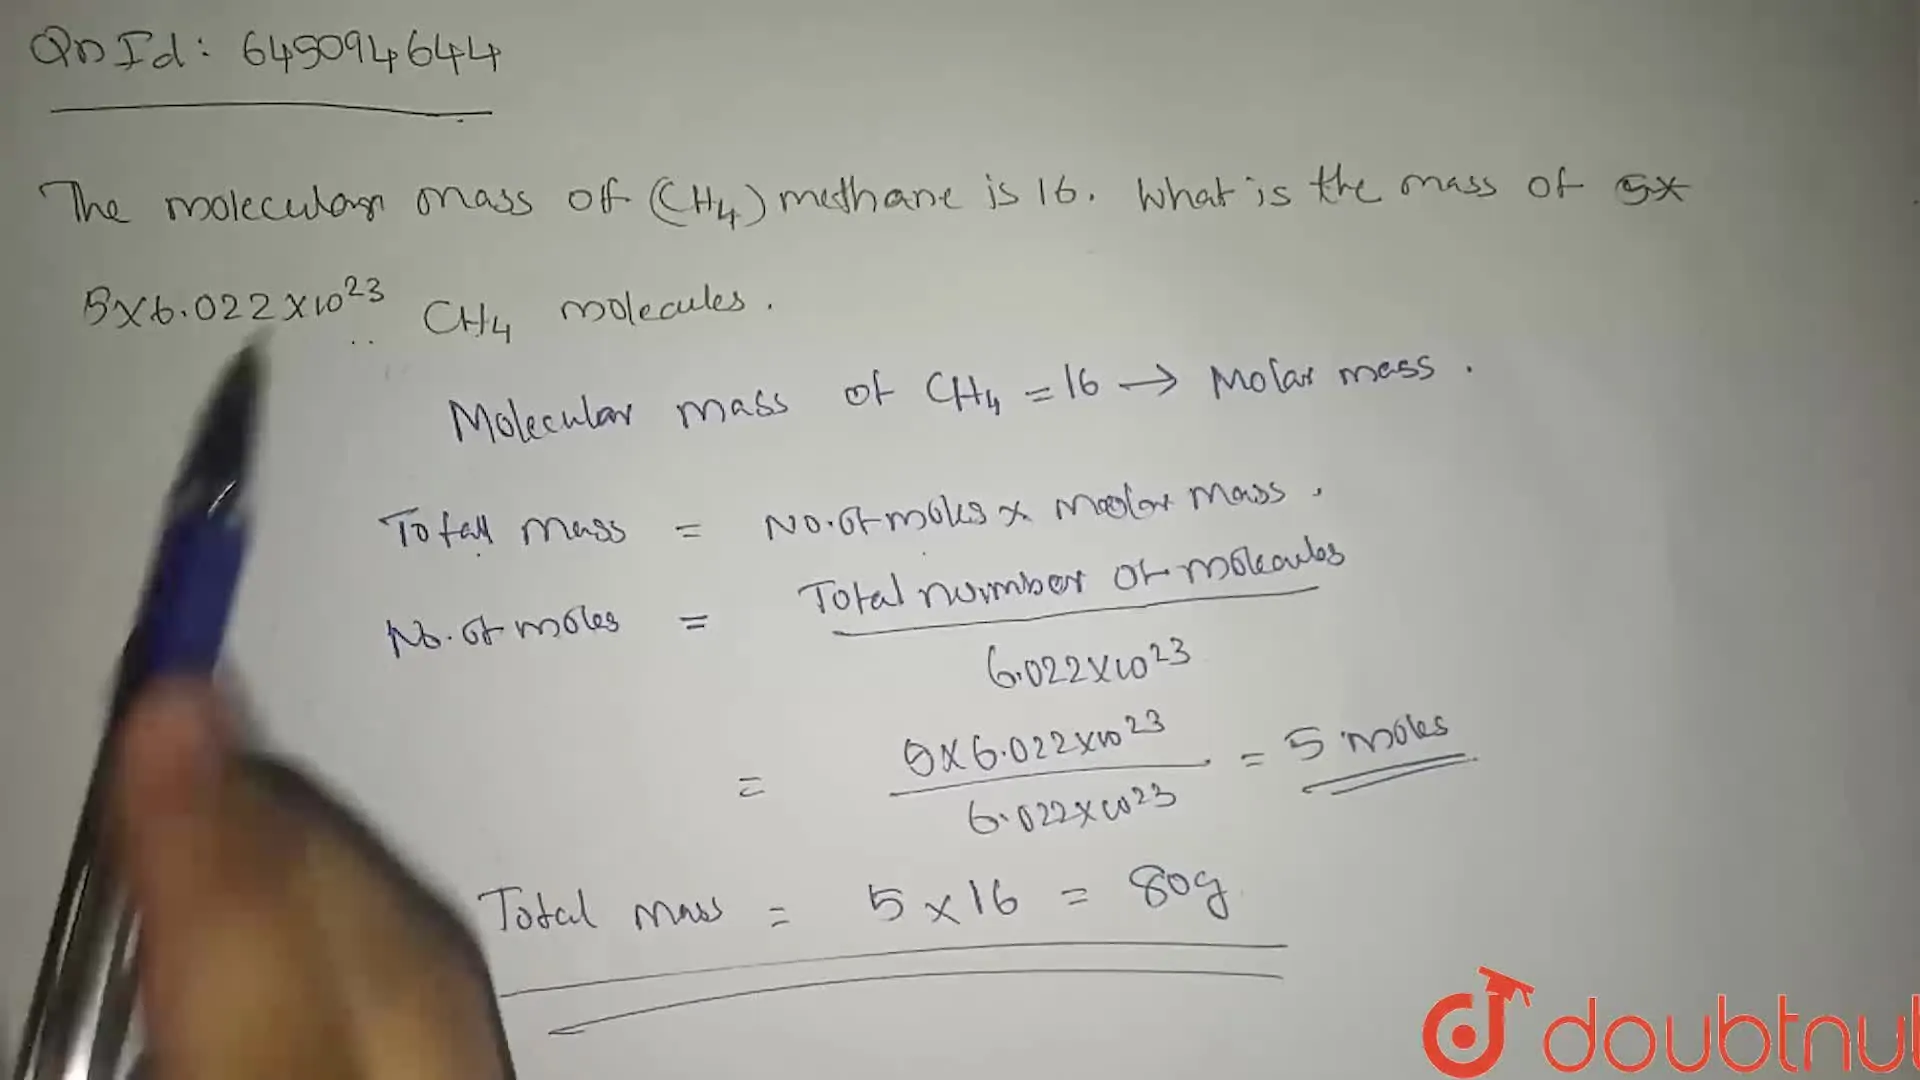 Qn Id: 645094644
The molecular mass of (CH4) methane is 16. What is the mass of 5x
5x6.022x10^23 CH4 molecules.
Molecular mass of CH4 = 16 → Molar mass.
Total mass = No.of moles x molar mass.
No.of moles = Total number of molecules
6.022x10^23
= 5x6.022x10^23 = 5 moles
6.022x10^23
Total mass = 5x16 = 80g
doubtnut